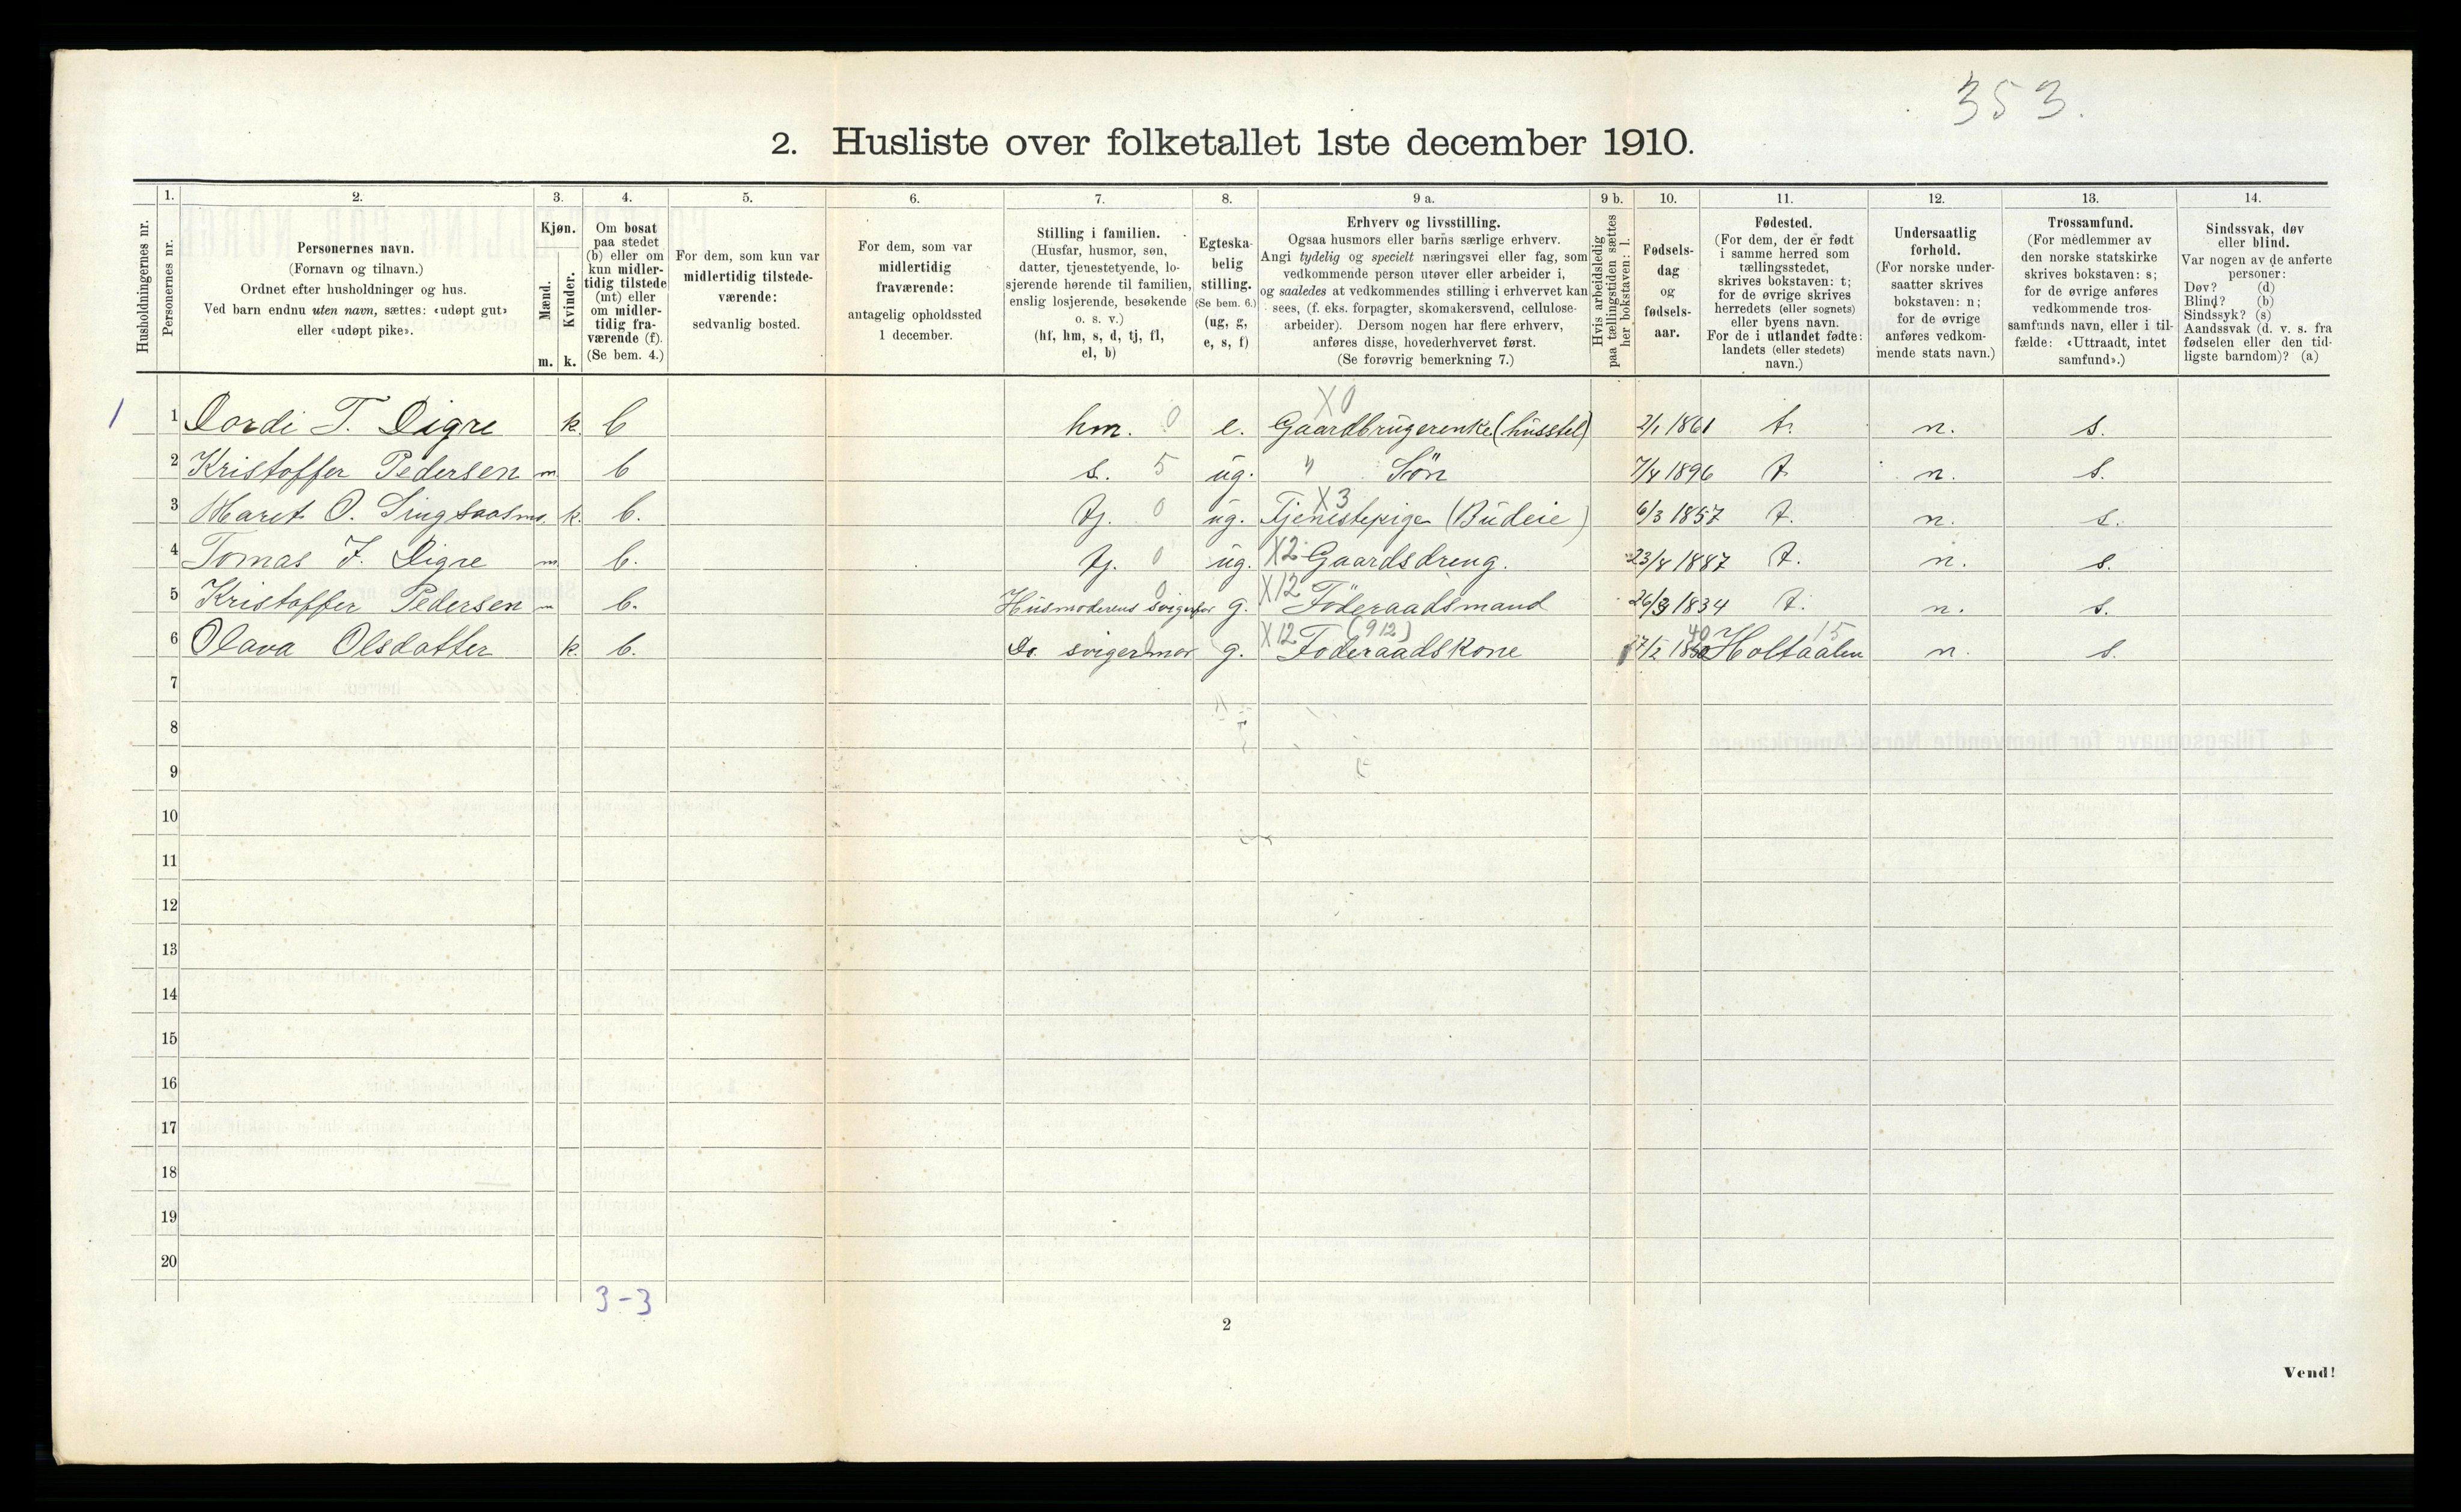 353.
2. Husliste over folketallet 1ste december 1910.
Husholdningernes nr.
1.
Personernes nr.
2.
Personernes navn.
(Fornavn og tilnavn.)
Ordnet efter husholdninger og hus.
Ved barn endnu uten navn, sættes: «udøpt gut»
eller «udøpt pike».
3.
Kjøn.
Mænd.
Kvinder.
m. k.
4.
Om bosat
paa stedet
(b) eller om
kun midler-
tidig tilstede
(mt) eller
om midler-
tidig fra-
værende (f).
(Se bem. 4.)
5.
For dem, som kun var
midlertidig tilstede-
værende:
sedvanlig bosted.
6.
For dem, som var
midlertidig
fraværende:
antagelig opholdssted
1 december.
7.
Stilling i familien.
(Husfar, husmor, søn,
datter, tjenestetyende, lo-
sjerende hørende til familien,
enslig losjerende, besøkende
o. s. v.)
(hf, hm, s, d, tj, fl,
el, b)
8.
Egteska-
belig
stilling.
(Se bem. 6.)
(ug, g,
e, s, f)
9 a.
Erhverv og livsstilling.
Ogsaa husmors eller barns særlige erhverv.
Angi tydelig og specielt næringsvei eller fag, som
vedkommende person utøver eller arbeider i,
og saaledes at vedkommendes stilling i erhvervet kan
sees, (f. eks. forpagter, skomakersvend, cellulose-
arbeider). Dersom nogen har flere erhverv,
anføres disse, hovederhvervet først.
(Se forøvrig bemerkning 7.)
9 b.
Hvis arbeidsledig
paa tællingstiden sættes
her bokstaven: l.
10.
Fødsels-
dag
og
fødsels-
aar.
11.
Fødested.
(For dem, der er født
i samme herred som
tællingsstedet,
skrives bokstaven: t;
for de øvrige skrives
herredets (eller sognets)
eller byens navn.
For de i utlandet fødte:
landets (eller stedets)
navn.)
12.
Undersaatlig
forhold.
(For norske under-
saatter skrives
bokstaven: n;
for de øvrige
anføres vedkom-
mende stats navn.)
13.
Trossamfund.
(For medlemmer av
den norske statskirke
skrives bokstaven: s;
for de øvrige anføres
vedkommende tros-
samfunds navn, eller i til-
fælde: «Uttraadt, intet
samfund».)
14.
Sindssvak, døv
eller blind.
Var nogen av de anførte
personer:
Døv? (d)
Blind? (b)
Sindssyk? (s)
Aandssvak (d. v. s. fra
fødselen eller den tid-
ligste barndom)? (a)
X0
1 1 Dordi T. Digre k. b hm. 0 e. Gaardbrugerenke (husstel) 2/1 1861 t. n. s.
2 Kristoffer Pedersen m b s. 5 ug. " Søn 7/4 1896 t. n. s.
X3
3 Maret O. Singsaasmo. k. b. tj. 0 ug. Tjenestepige (Budeie) 6/3 1857 t. n. s.
4 Tomas J. Digre m b. tj. 0 ug. X2 Gaardsdreng. 23/4 1887 t. n. s.
5 Kristoffer Pedersen m b. Husmoderens svigerfar 0 g. X12 Föderaadsmand 26/3 1834 t. n. s.
(912) 40 15
6 Olava Olsdatter k. b. Do. svigermor 0 g. X12 Föderaadskone Holtaalen n. s.
7
8
9
10
11
12
13
14
15
16
17
18
19
20
3-3
2
Vend!